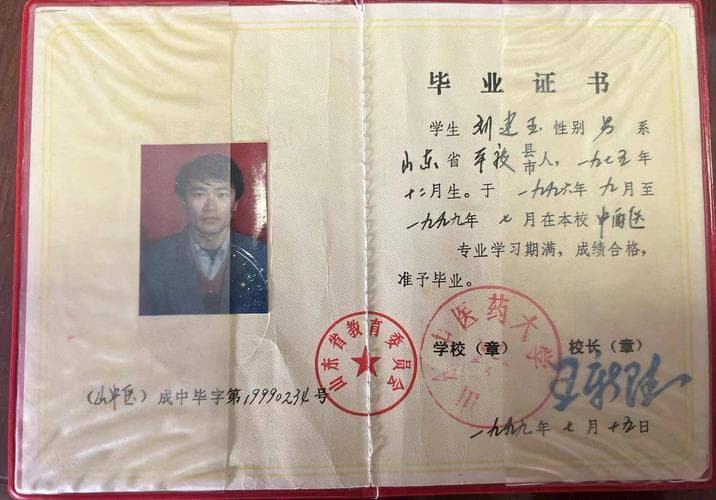 毕业证书
学生 刘建玉 性别 男 系
山东省 平 县市人，一九七五年
十二月生。于一九九六年九月至
一九九九年七月在本校中西医
专业学习期满，成绩合格，
准予毕业。
学校（章） 校长（章）
医药大学
山东省教育委员会
（山中医）成中毕字第19990234号
一九九九年七月十五日